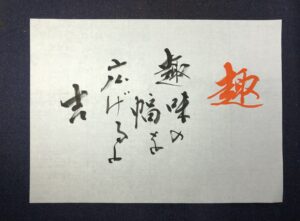 趣
趣味の
幅を
広げると
吉